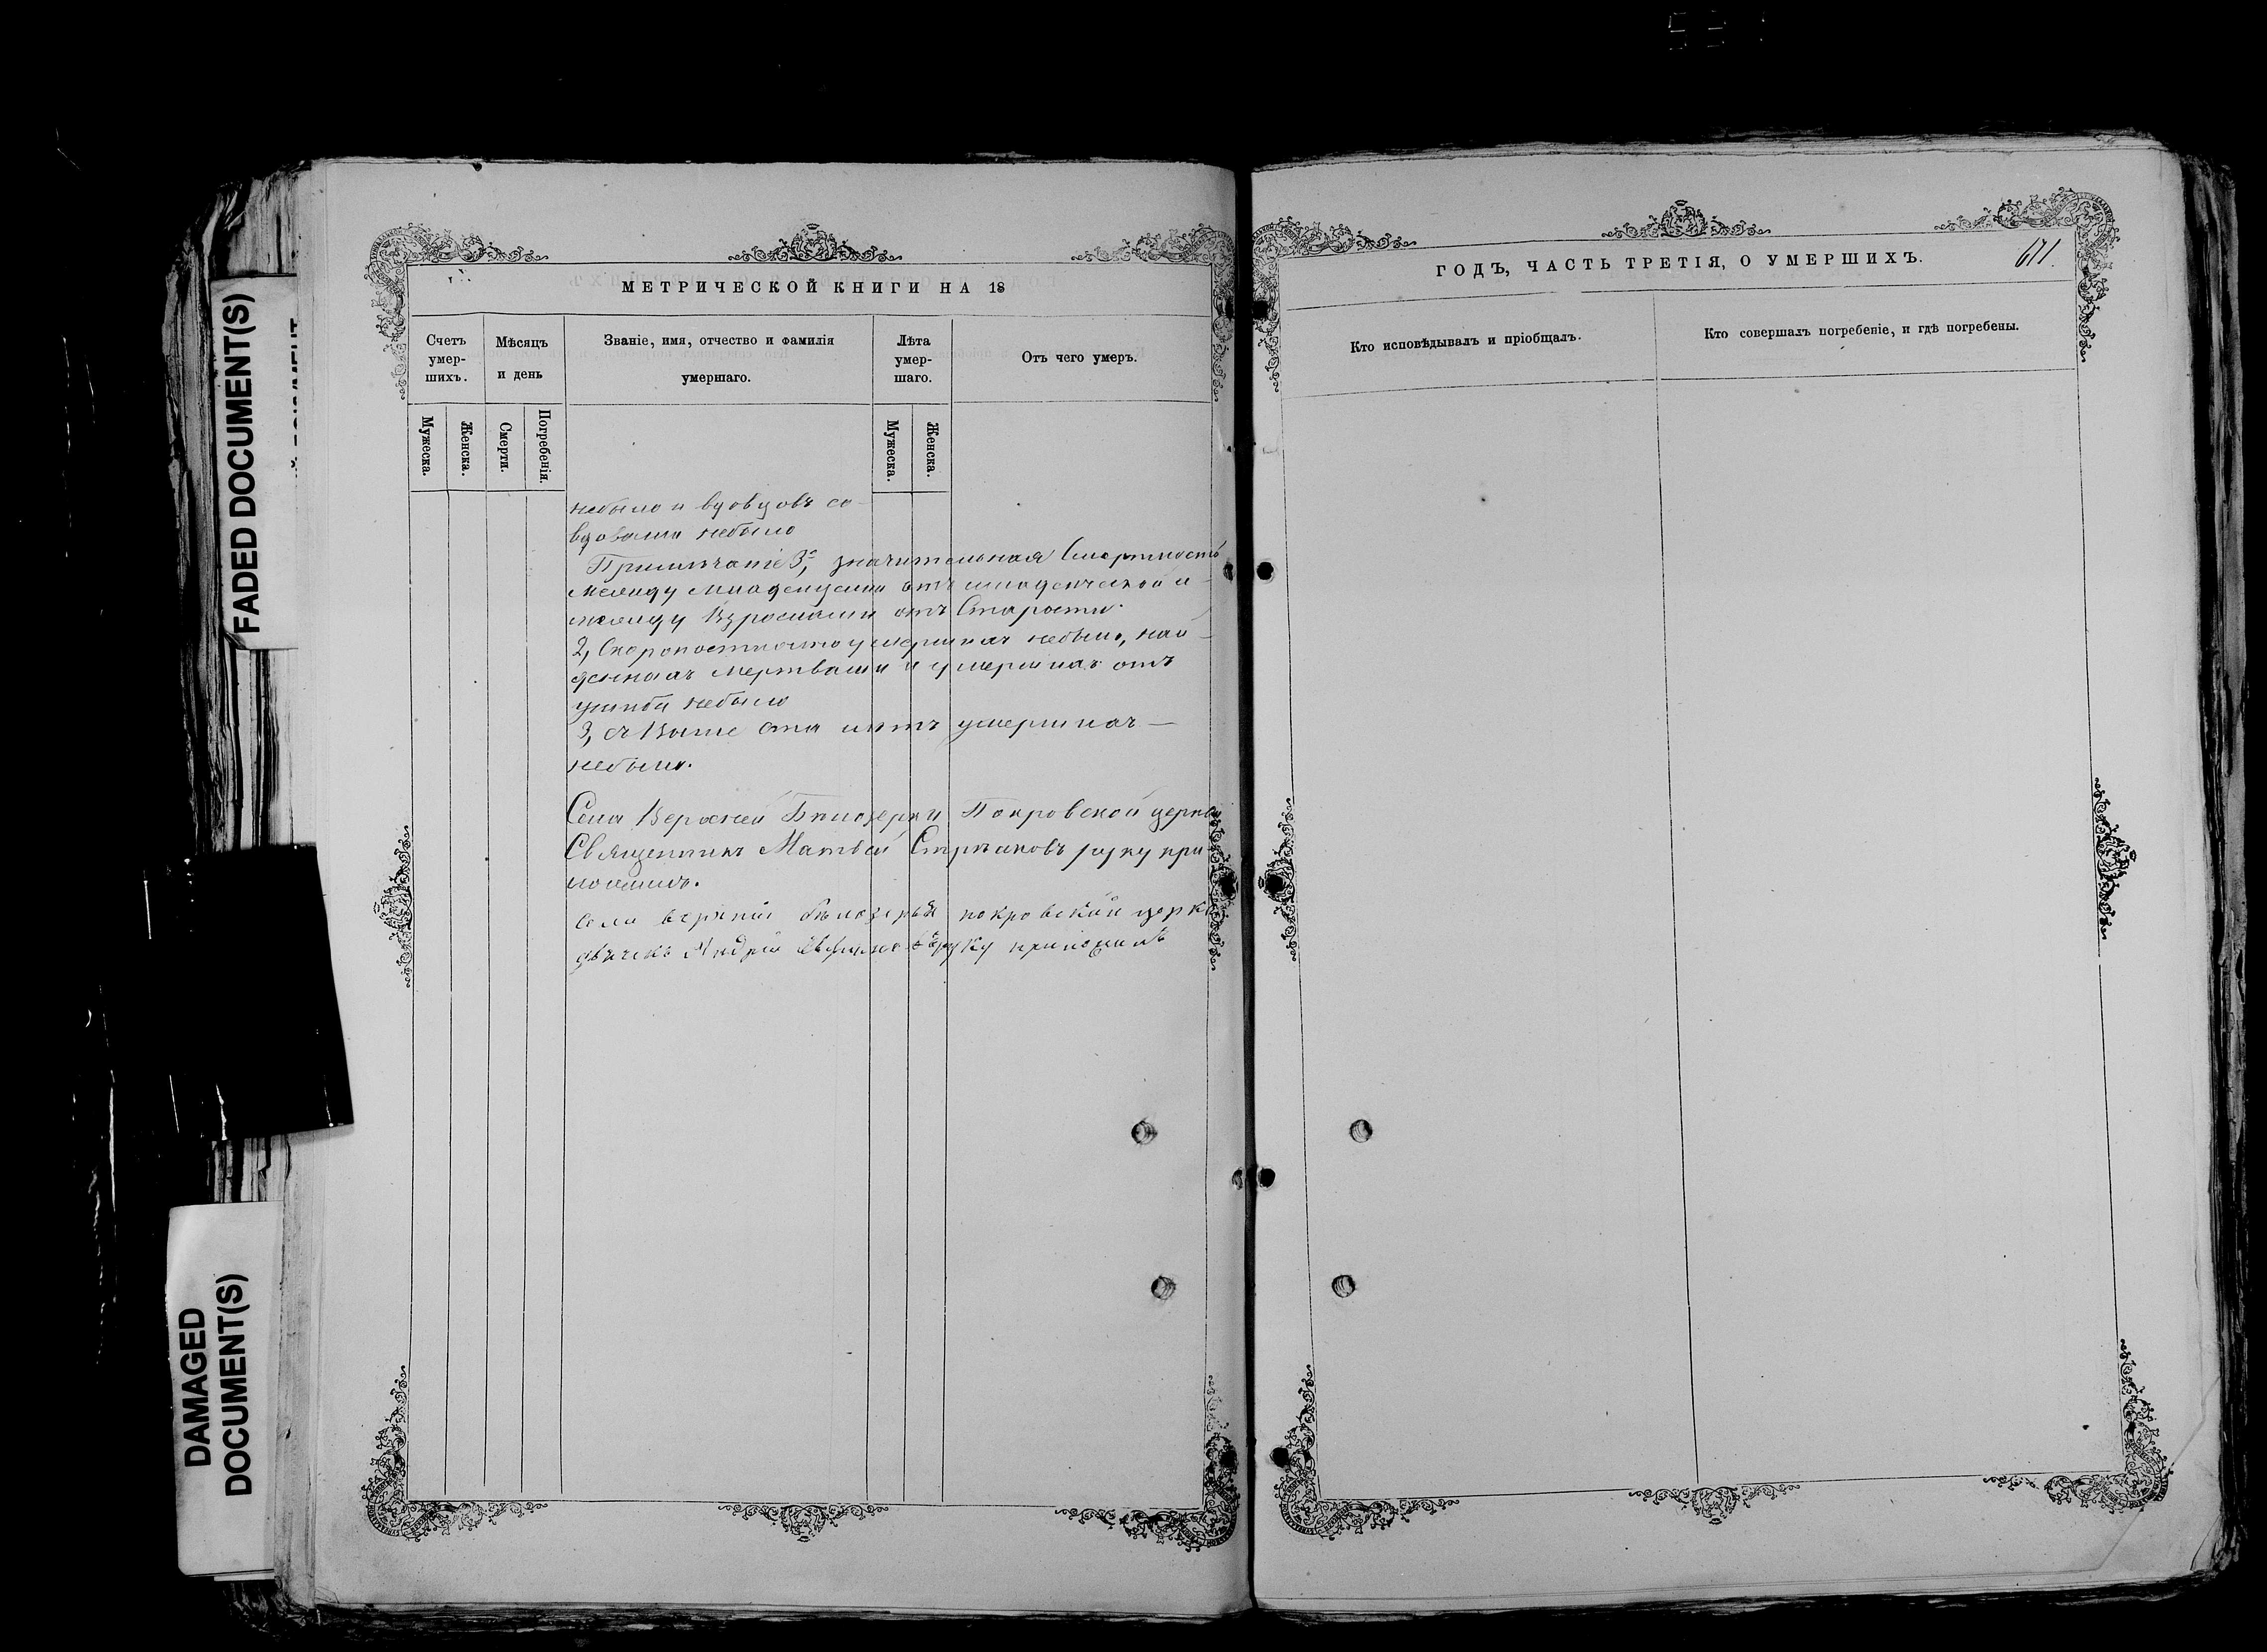 FADED DOCUMENT(S)
DAMAGED
DOCUMENT(S)
МЕТРИЧЕСКОЙ КНИГИ НА 18
Счетъ
умер-
шихъ.
Мѣсяцъ
и день
Званіе, имя, отчество и фамилія
умершаго.
Лѣта
умер-
шаго.
Отъ чего умеръ.
Мужеска.
Женска.
Смерти.
Погребенія.
Мужеска.
Женска.
небыло и вдовцовъ со
вдовами небыло
Примѣчаніе значительная Смертность
между младенцами отъ младенческой и
между Взрослыми отъ Старости.
2, Скоропостижно умершихъ небыло, най-
денныхъ мертвыми и умершихъ отъ
ушиба небыло
3, Выше ста лѣтъ умершихъ —
небыло.
Села Верхней Бѣлозерки Покровской церкви
Священникъ Матвѣй руку при-
ложилъ.
села верхній бѣлозерки покровской церкви
Андрей руку приложилъ
ГОДЪ, ЧАСТЬ ТРЕТІЯ, О УМЕРШИХЪ.
671.
Кто исповѣдывалъ и пріобщалъ.
Кто совершалъ погребеніе, и гдѣ погребены.